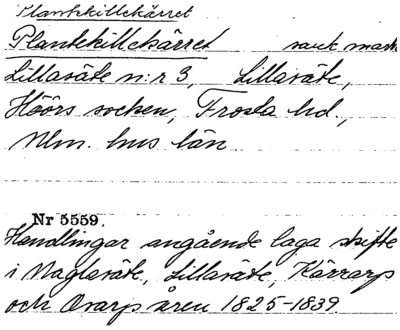 Plantekillekärret
Plantekillekärret sank mark
Lillasäte n:r 3, Lillasäte,
Höörs socken, Frosta hd.,
Mlm. hus län
Nr 5559.
Handlingar angående laga skifte
i Maglasäte, Lillasäte, Kärrarp
och Orarp åren 1825-1839.